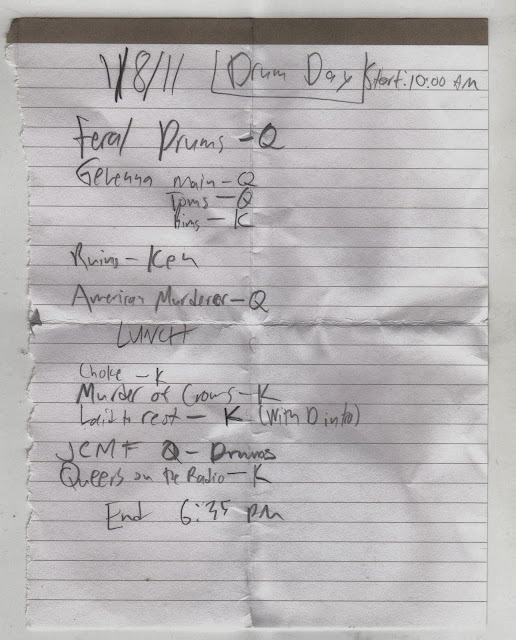 1/8/11 Drum Day Start: 10:00 AM
Feral Drums - Q
Gehenna Main - Q
Toms - Q
Rims - K
Ruins - Ken
American Murderer - Q
LUNCH
Choke - K
Murder of Crows - K
Laid to rest - K (With D intro)
JCMF Q - Drums
Queers on the Radio - K
End 6:35 PM